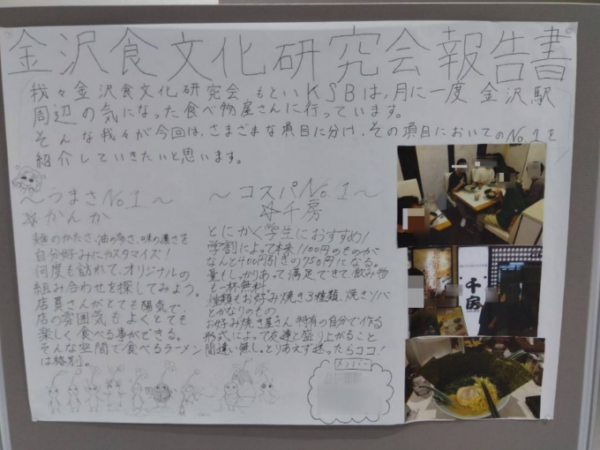 金沢食文化研究会報告書
我々金沢食文化研究会、もといKSBは、月に一度 金沢駅
周辺の気になった食べ物屋さんに行っています。
そんな我々が今回は、さまざまな項目に分け、その項目においてのNo.1を
紹介していきたいと思います。
～うまさNo.1～
☆かんか
麺のかたさ、油の多さ、味の濃さを
自分好みにカスタマイズ!
何度も訪れて、オリジナルの
組み合わせを探してみよう。
店員さんがとても陽気で、
店の雰囲気もよくとても
楽しく食べる事ができる。
そんな空間で食べるラーメン
は格別。
～コスパNo.1～
☆千房
とにかく学生におすすめ!
学割によって本来1100円のものが
なんと400円引きの750円になる。
量もしっかりあって満足できて飲み物
も一杯無料。
種類もお好み焼き3種類、焼きソバ
とかなりのもの
お好み焼き屋さん特有の自分で作る
形式によって友達と盛り上がること
間違い無し。とりあえず迷ったらココ!
メンバー
千房